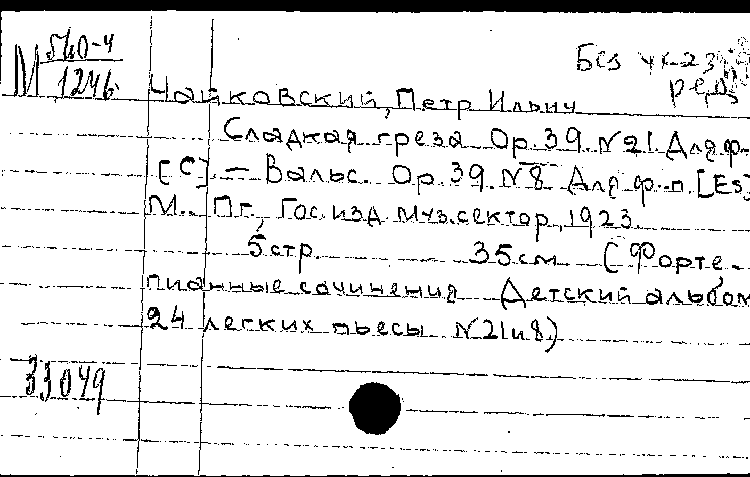 М 540-4
1246
Без
ред
Чайковский, Петр Ильич
Сладкая греза Op. 39. N21. Для ф.-
[C] — Вальс. Op. 39. N8 Для ф.-п. [Es]
М.. Пг., Гос. изд. Муз. сектор, 1923.
5 стр. 35 см (Форте-
пианные сочинения Детский альбом
24 легких пьесы N21 и 8)
33049